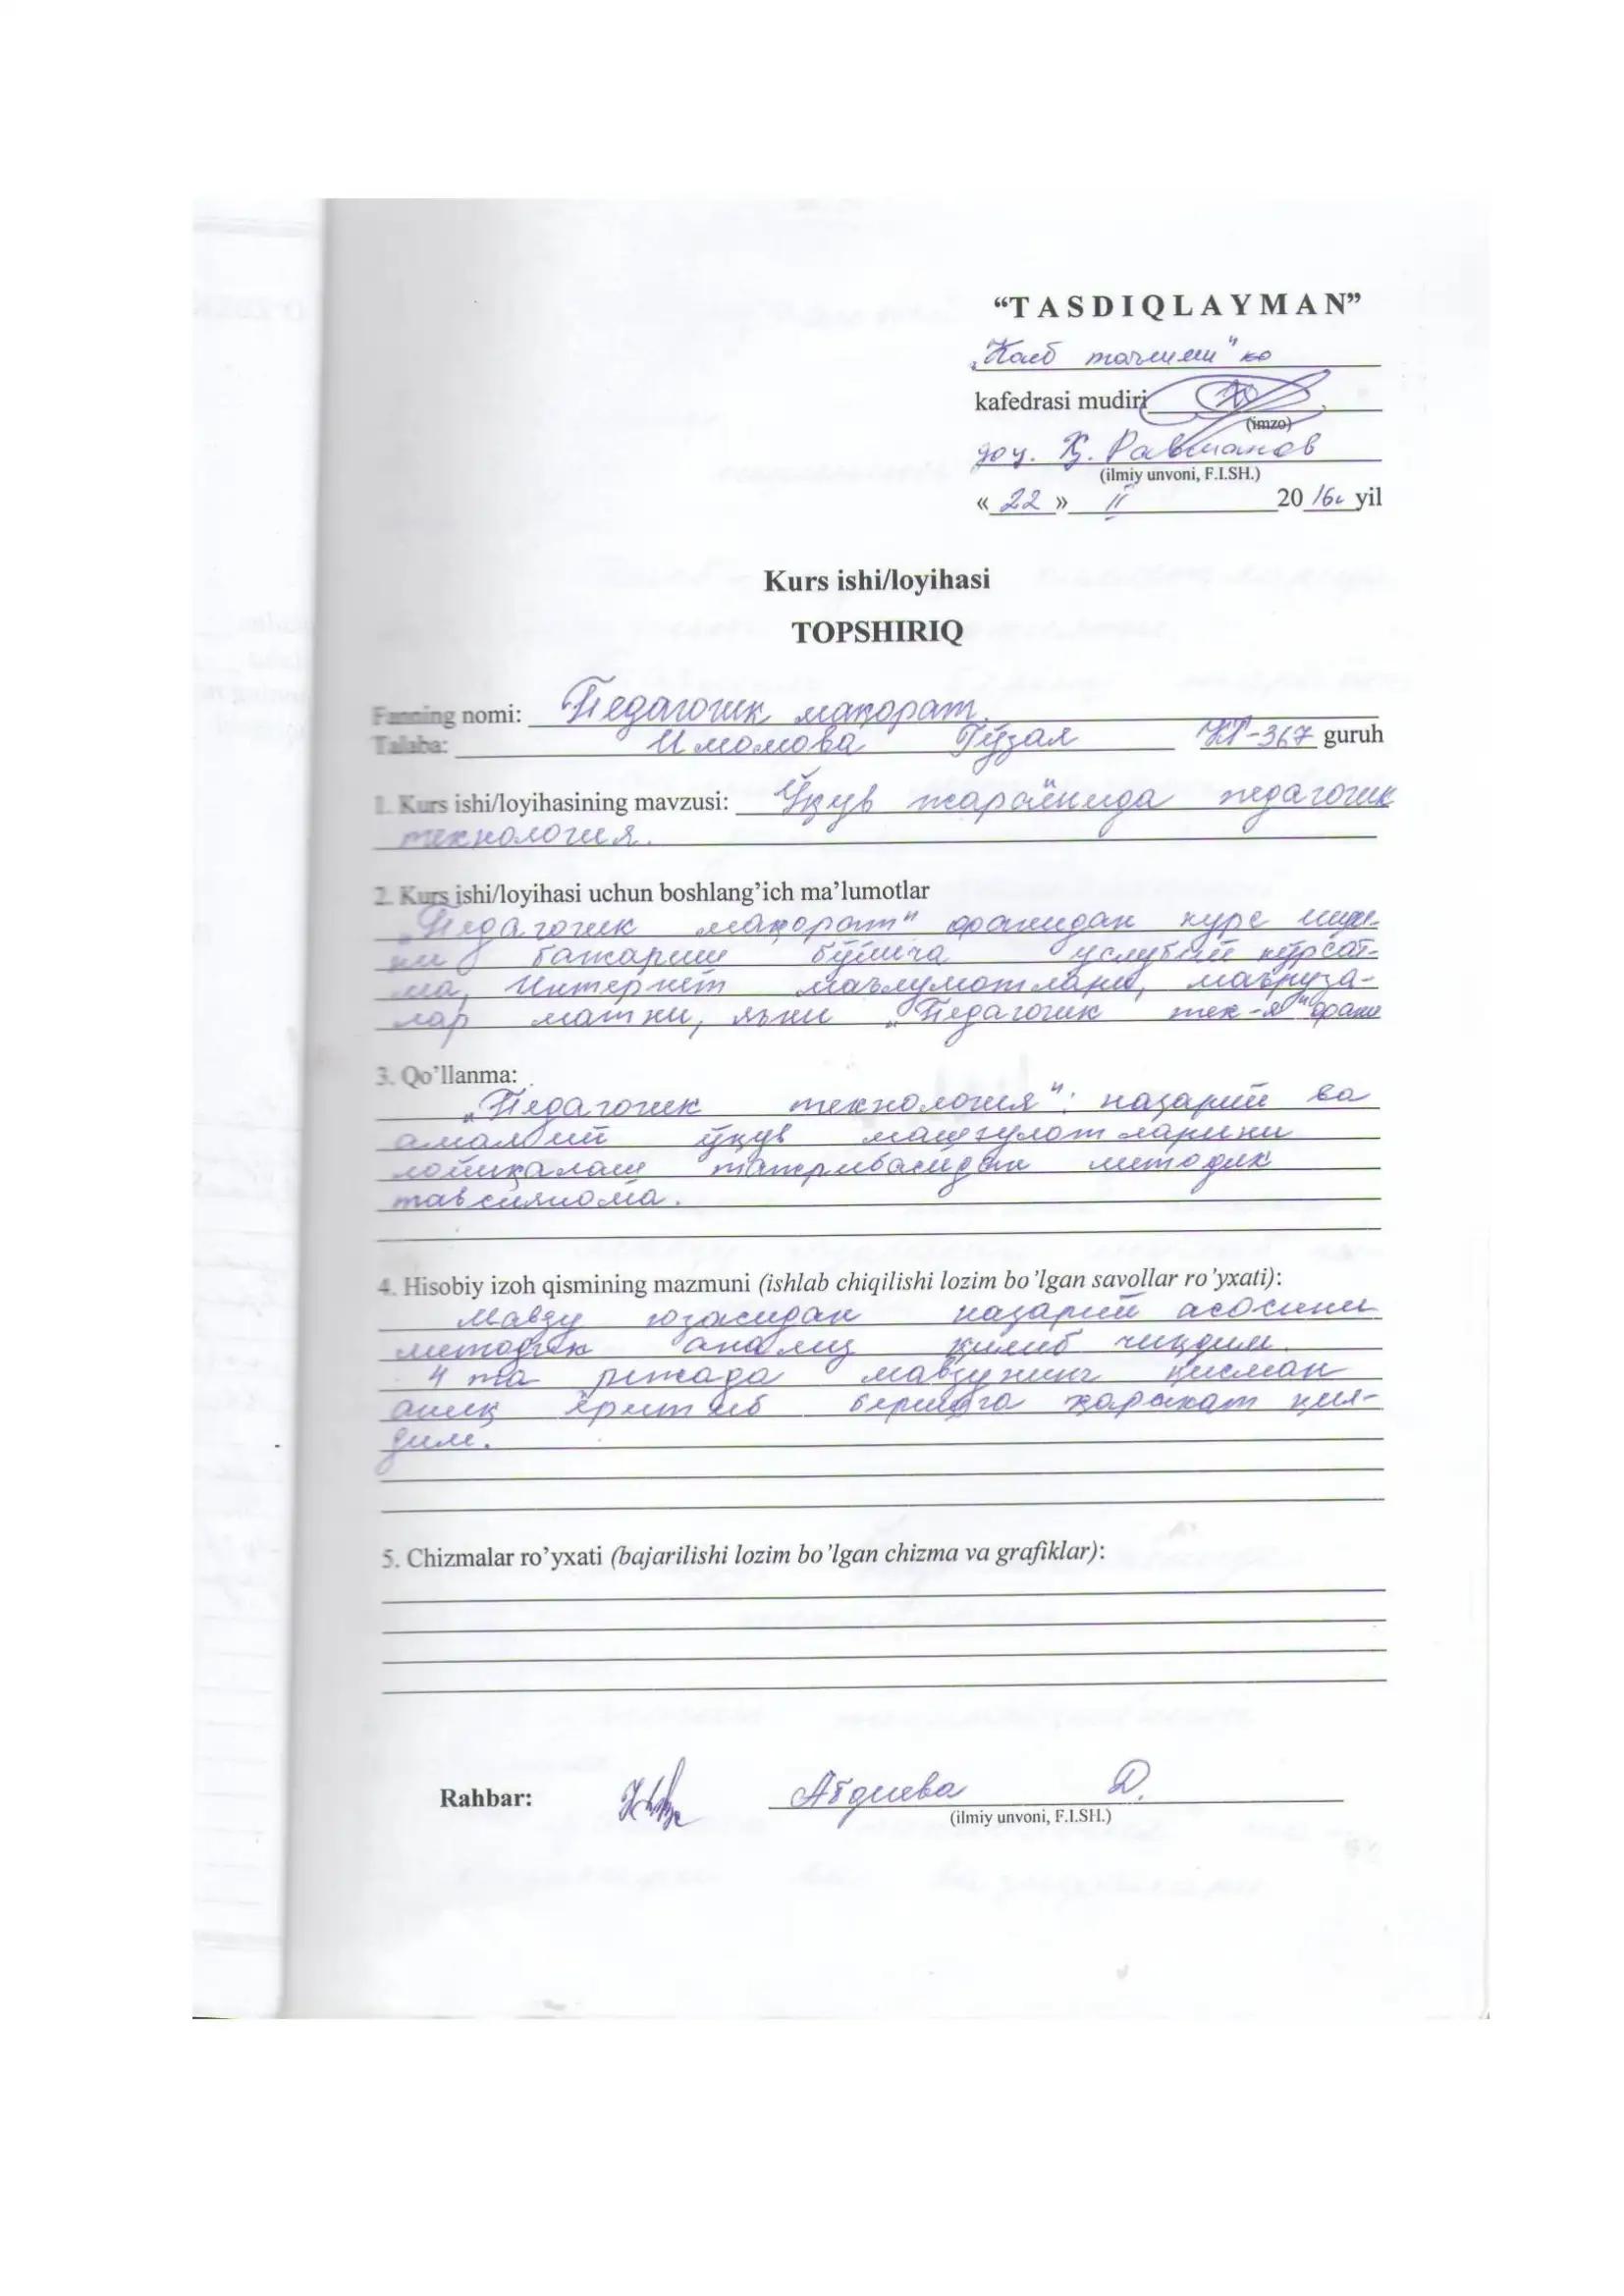 “TASDIQLAYMAN”
„Касб таълими"
kafedrasi mudiri
(imzo)
доц. Қ. Равшанов
(ilmiy unvoni, F.I.SH.)
« 22 » II 2016 yil
Kurs ishi/loyihasi
TOPSHIRIQ
Fanning nomi: Педагогик маҳорат.
Talaba: Имомова Гўзал КТ-367 guruh
1. Kurs ishi/loyihasining mavzusi: Ўқув жараёнида педагогик
технология.
2. Kurs ishi/loyihasi uchun boshlang’ich ma’lumotlar
„Педагогик маҳорат" фанидан курс иши-
ни бажариш бўйича услубий кўрсат-
ма, Интернет маълумотлари, маъруза-
лар матни, яъни „Педагогик тех-я" фани
3. Qo’llanma:
„Педагогик технология": назарий ва
амалий ўқув машғулотларини
лойиҳалаш тажрибасидан методик
тавсиянома.
4. Hisobiy izoh qismining mazmuni (ishlab chiqilishi lozim bo’lgan savollar ro’yxati):
Мавзу юзасидан назарий асосини
методик анализ қилиб чиқдим.
4 та режада мавзунинг қисман
аниқ ёритиб беришга ҳаракат қил-
дим.
5. Chizmalar ro’yxati (bajarilishi lozim bo’lgan chizma va grafiklar):
Rahbar: Абдиева Д.
(ilmiy unvoni, F.I.SH.)